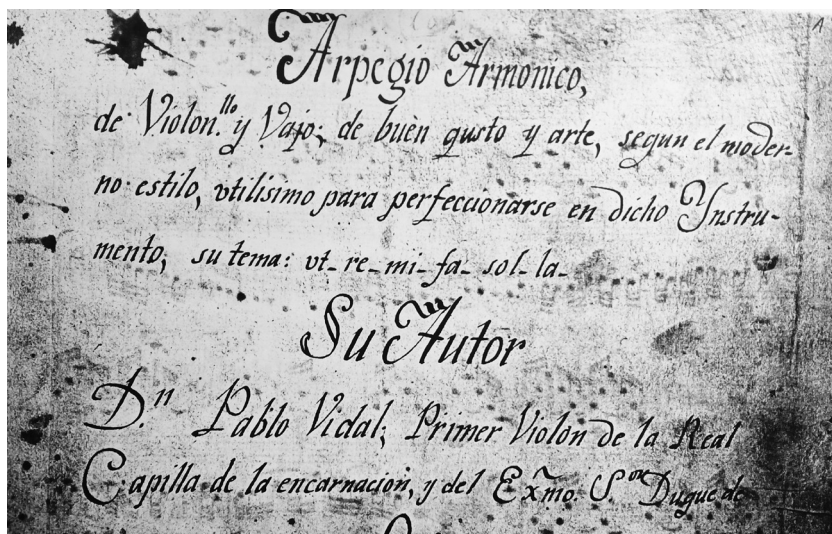 1
Arpegio Armonico,
de Violon.llo y Vajo; de buèn gusto y arte, segun el moder-
no estilo, vtilisimo para perfeccionarse en dicho Ynstru-
mento, su tema: vt- re- mi- fa- sol- la-
Su Autor
D.n Pablo Vidal; Primer Violon de la Real
Capilla de la encarnacion, y del Exmo. S.or Duque de